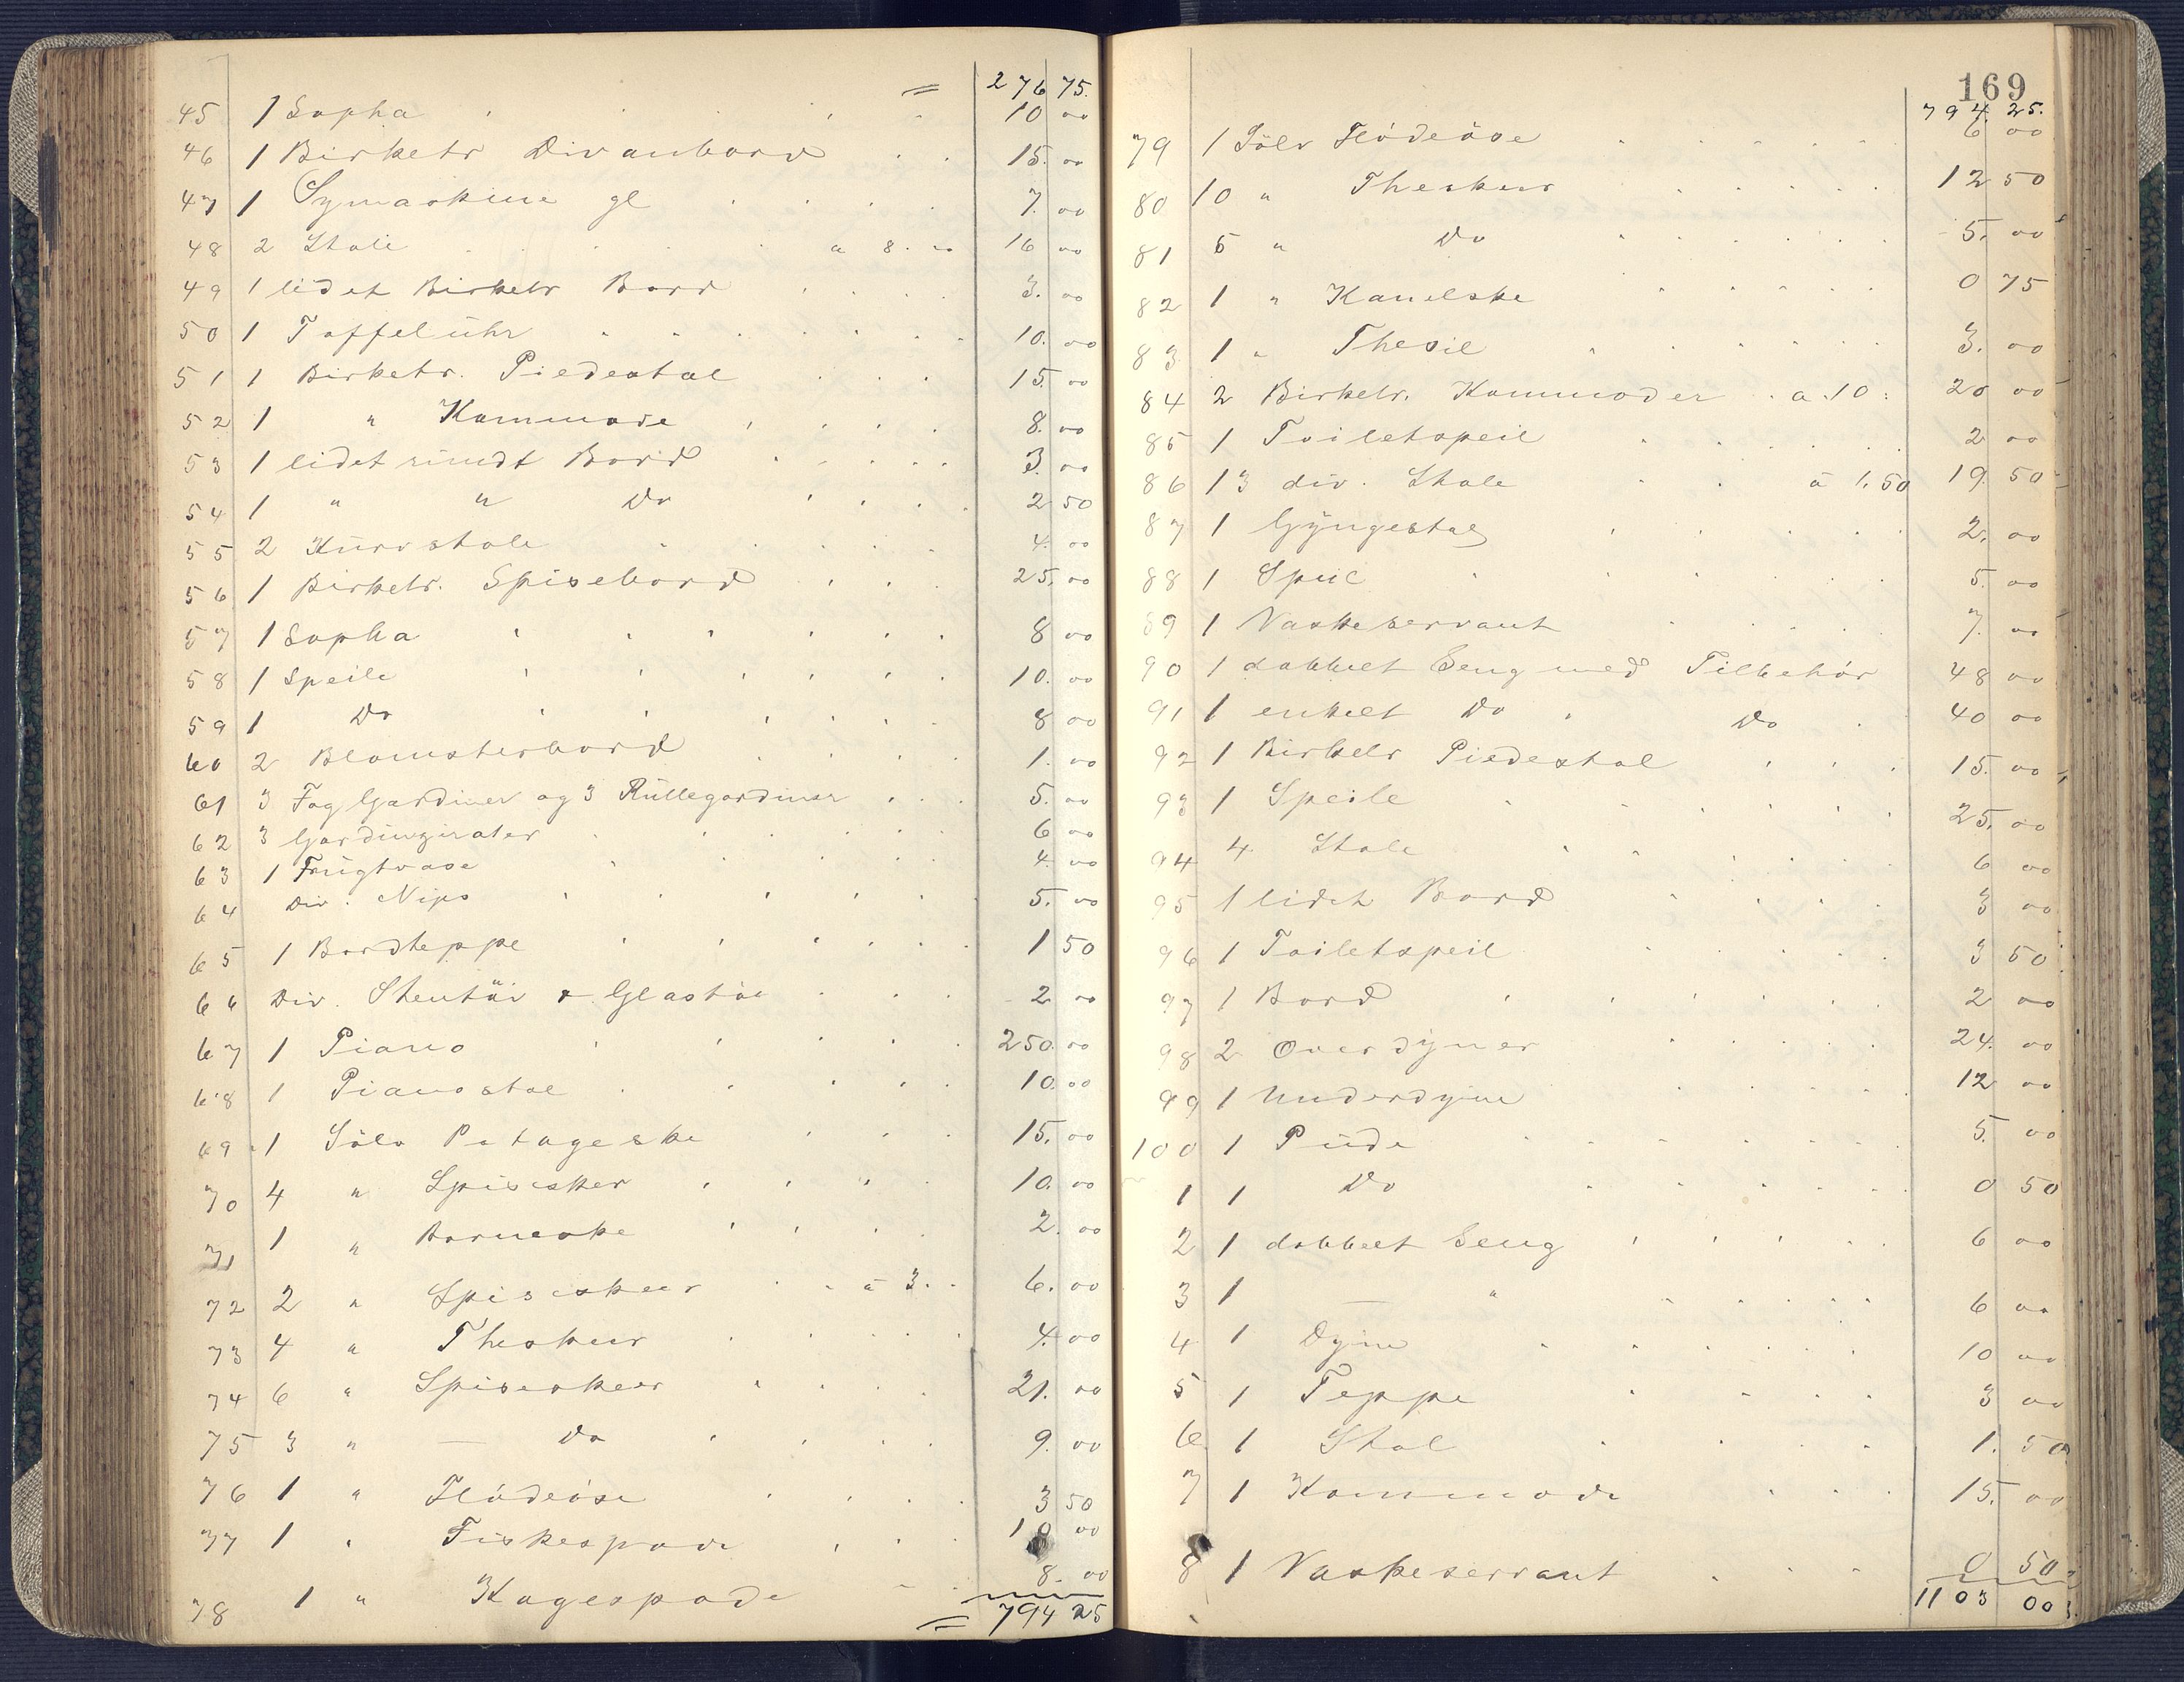 = 276 75.
45 1 Sopha 10 00
46 1 Birketr Divanbord 15. 00
47 1 Symaskine gl 7. 00
48 2 Stole a 8. 00 16 00
49 1 lidet Birketr Bord 3. 00
50 1 Taffeluhr 10. 00
51 1 Birketr. Piedestal 15. 00
52 1 " Kommode 8. 00
53 1 lidet rundt Bord 3. 00
54 1 " " Do 2 50
55 2 Kurvstole 4. 00
56 1 Birketr. Spisebord 25. 00
57 1 Sopha 8 00
58 1 Speile 10. 00
59 1 Do 8 00
60 2 Blomsterbord 1. 00
61 3 Fag Gardiner og 3 Rullegardiner 5. 00
62 3 Gardinzirater 6 00
63 1 Frugtvase 4. 00
64 Div. Nips 5. 00
65 1 Bordteppe 1 50
66 Div. Stentöi & Glastöi 2 00
67 1 Piano 250. 00
68 1 Pianostol 10. 00
69 1 Sölv Potageske 15. 00
70 4 " Spiseskeer 10. 00
71 1 " Barneske 2. 00
72 2 " Spiseskeer a 3. 6. 00
73 4 " Theskeer 4. 00
74 6 " Spiseskeer 21. 00
75 3 " — Do 9. 00
76 1 " Flödeöse 3 50
77 1 " Fiskespade 10 00
78 1 " Kagespade 8. 00
= 794 25
169
794. 25.
79 1 Sölv Flödeöse 6 00
80 10 " Theskeer 12 50
81 5 " Do 5. 00
82 1 " Kanelske 0 75
83 1 " Thesil 3. 00
84 2 Birketr. Kommoder a 10. 20 00
85 1 Toiletspeil 2 00
86 13 div. Stole a 1.50 19. 50
87 1 Gyngestol 2. 00
88 1 Speil 5. 00
89 1 Vaskeservant 7. 00
90 1 dobbelt Seng med Tilbehör 48 00
91 1 enkelt Do " Do 40 00
92 1 Birketr Piedestal 15. 00
93 1 Speile 25. 00
94 4 Stole 6 00
95 1 lidet Bord 3 00
96 1 Toiletspeil 3 50
97 1 Bord 2 00
98 2 Overdyner 24. 00
99 1 Underdyne 12 00
100 1 Pude 5. 00
1 1 Do 0 50
2 1 dobbelt Seng 6 00
3 1 — " 6 00
4 1 Dyne 10 00
5 1 Teppe 3 00
6 1 Stol 1. 50
7 1 Kommode 15. 00
8 1 Vaskeservant 0 50
1103 00